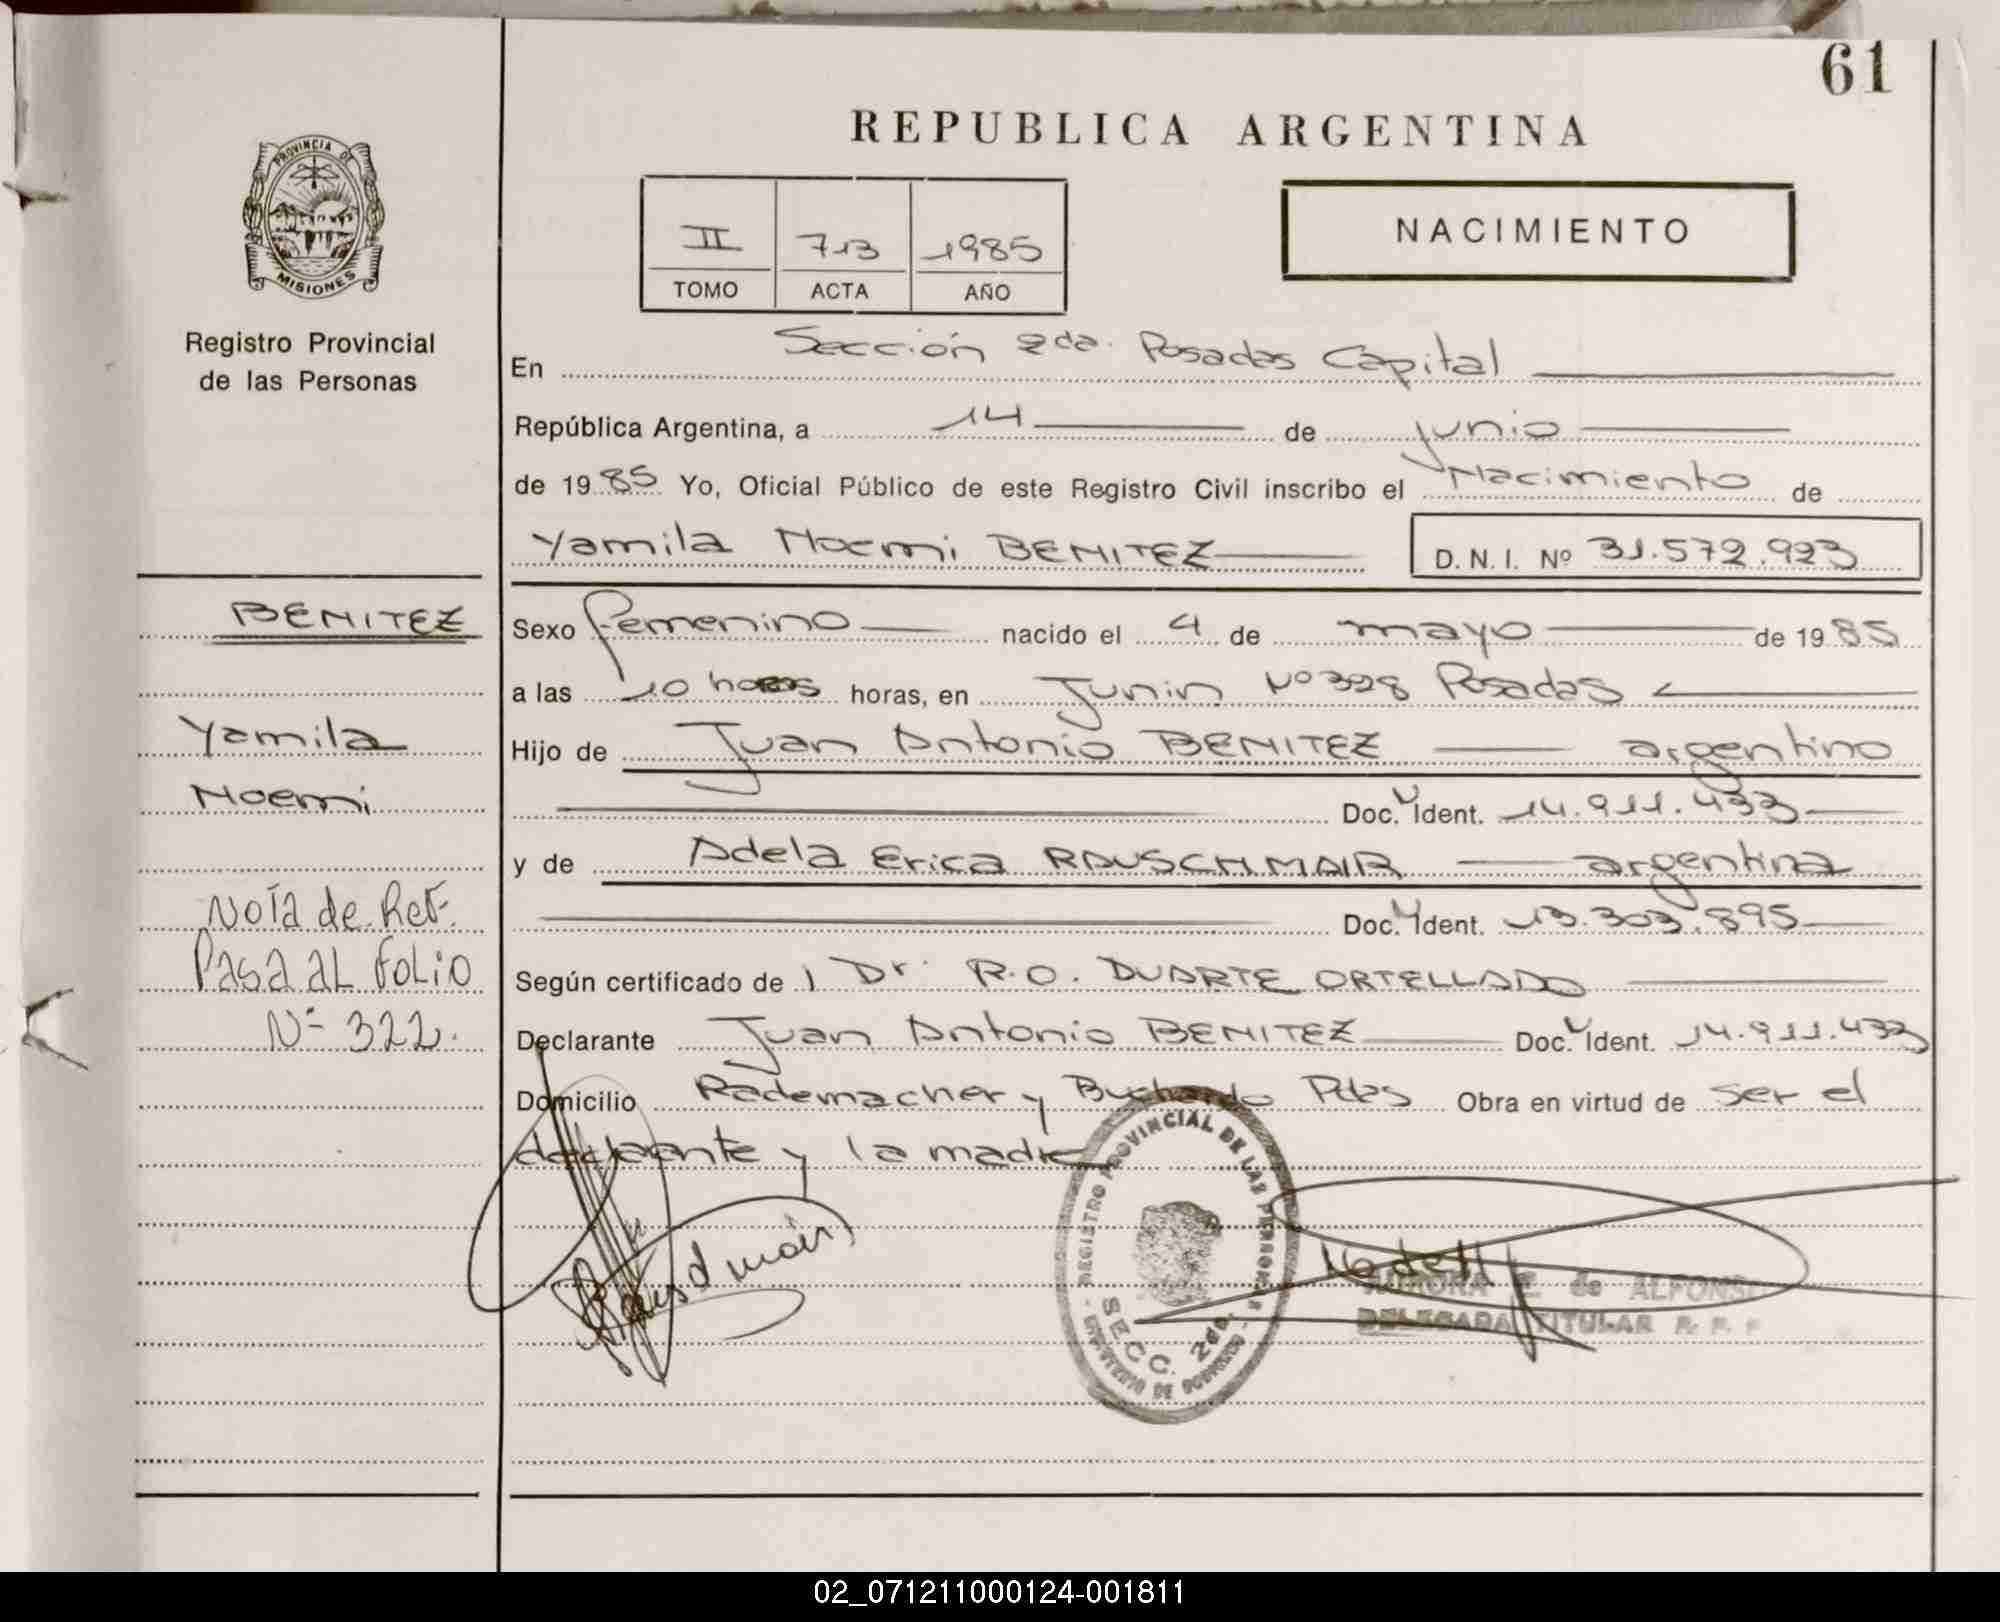 61
REPUBLICA ARGENTINA
PROVINCIA DE
MISIONES
Registro Provincial
de las Personas
II 713 1985
TOMO ACTA AÑO
NACIMIENTO
En Sección 2da. Posadas Capital
República Argentina, a 14 de junio
de 1985 Yo, Oficial Público de este Registro Civil inscribo el Nacimiento de
Yamila Noemi BENITEZ D.N.I. Nº 31.572.923
BENITEZ
Yamila
Noemi
Nota de Ref.
Pasa al folio
Nº 322.
Sexo femenino nacido el 4 de mayo de 1985
a las 10 horas horas, en Junin Nº 328 Posadas
Hijo de Juan Antonio BENITEZ argentino
Doc. Ident. 14.911.433
y de Adela Erica RAUSCHMAIR argentina
Doc. Ident. 13.303.895
Según certificado de 1 Dr. R.O. DUARTE ORTELLADO
Declarante Juan Antonio BENITEZ Doc. Ident. 14.911.433
Domicilio Rademacher y Buchardo Pdas Obra en virtud de ser el
declarante y la madre
REGISTRO PROVINCIAL DE LAS PERSONAS
SECC. 2da.
MINISTERIO DE GOBIERNO
AURORA E. de ALFONSO
DELEGADA TITULAR R. P. P
02_071211000124-001811